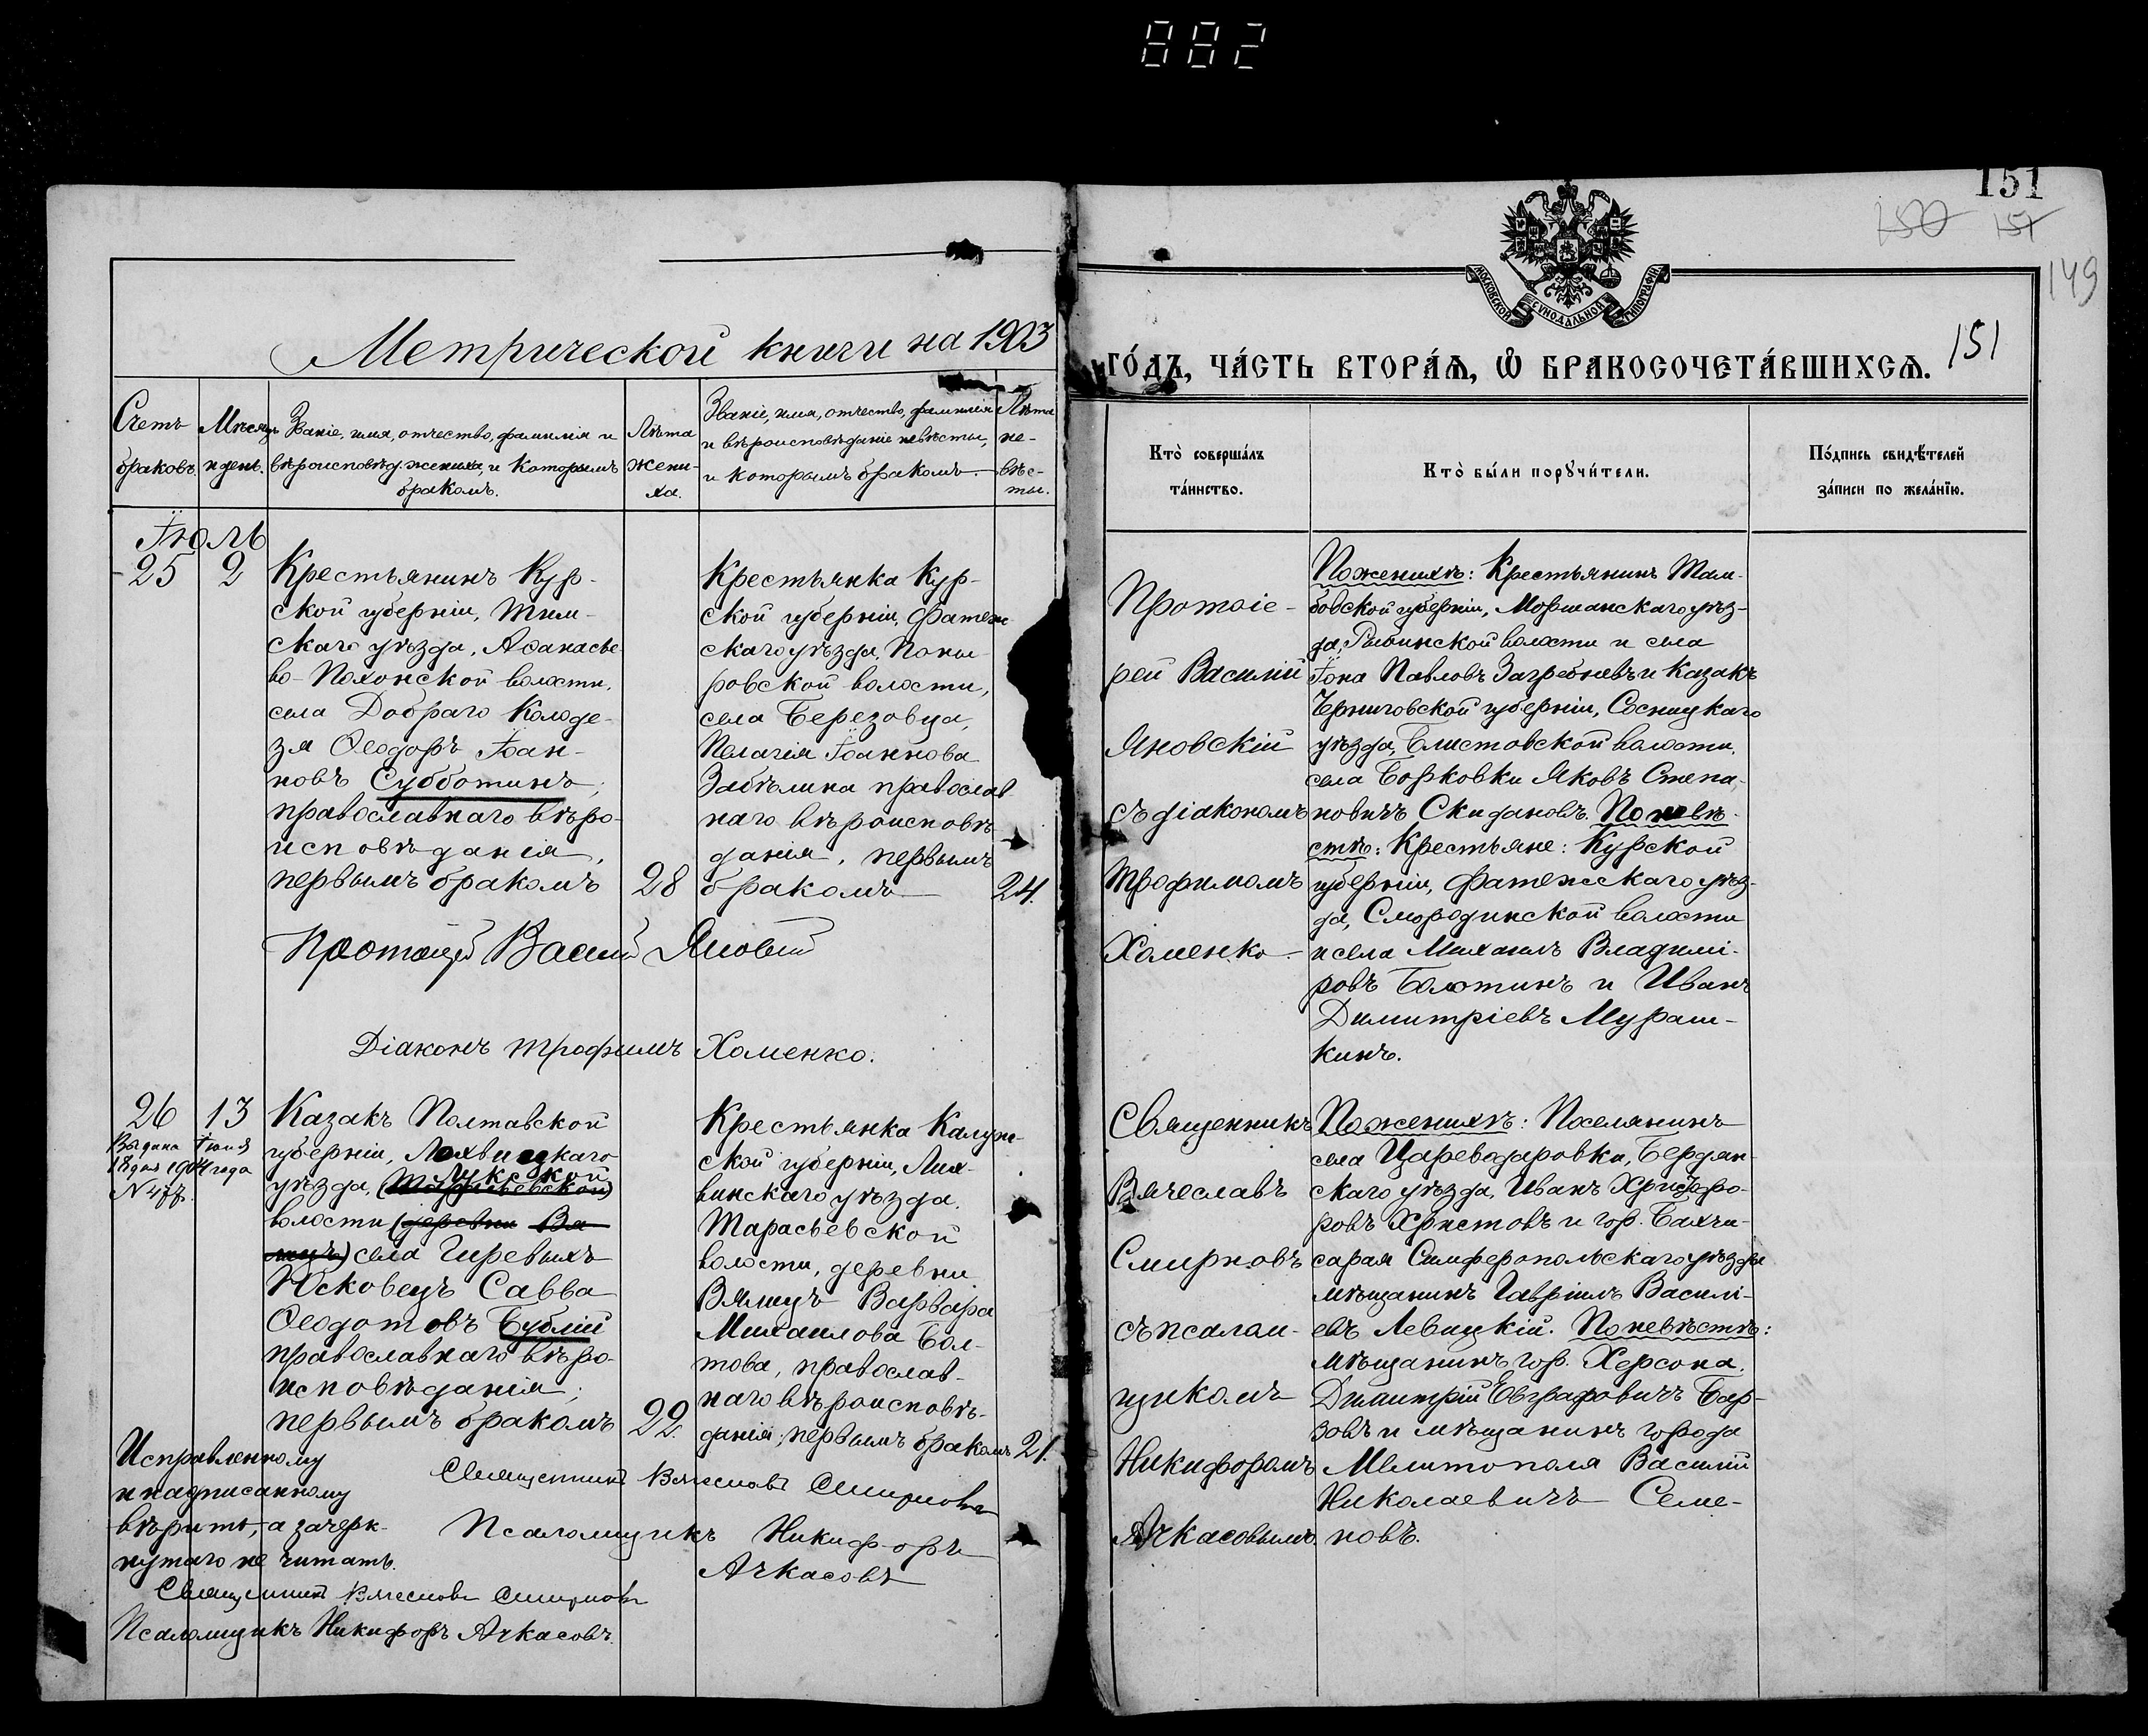 882
151
150 151
149
МОСКОВСКОЙ СѴНОДАЛЬНОЙ ТИПОГРАФІИ
Метрической книги на 1903
ГО́ДЪ, ЧА́СТЬ ВТОРА́Ѧ, Ѡ҆ БРАКОСОЧЕТА́ВШИХСѦ.
151
Счетъ
браковъ.
Мѣсяцъ
и день.
Званіе, имя, отчество, фамилія и
вѣроисповѣд. жениха, и которымъ
бракомъ.
Лѣта
жени-
ха.
Званіе, имя, отчество, фамилія
и вѣроисповѣданіе невѣсты,
и которымъ бракомъ.
Лѣта
не-
вѣс-
ты.
Кто̀ соверша́лъ
та́инство.
Кто̀ бы́ли порꙋчи́тели.
По́дпись свидѣ́телей
за́писи по жела́нїю.
Іюль
25
2
Крестьянинъ Кур-
ской губерніи, Тим-
скаго уѣзда, Аѳанасье
во-Пахонской волости,
села Добраго Колоде-
зя Ѳеодоръ Іоан-
новъ Субботинъ;
православнаго вѣро-
исповѣданія,
первымъ бракомъ
28
Крестьянка Кур-
ской губерніи, Фатеж
скаго уѣзда, Поны
ровской волости,
села Березовца,
Пелагія Іоаннова
Забѣлина православ
наго вѣроисповѣ
данія, первымъ
бракомъ
24.
Протоіе-
рей Василій
Яновскій
съ діакономъ
Трофимомъ
Хоменко
По женихѣ: Крестьянинъ Там-
бовской губерніи, Моршанскаго уѣз-
да, Рыбинской волости и села
Іона Павловъ Загребневъ и Казакъ
Черниговской губерніи, Сосницкаго
уѣзда, Блистовской волости,
села Борковки Яковъ Степа-
новичъ Скидановъ. По невѣ-
стѣ: Крестьяне: Курской
губерніи, Фатежскаго уѣз-
да, Смородинской волости
и села Михаилъ Владимі-
ровъ Болотинъ и Иванъ
Димитріевъ Мураш-
кинъ.
Протоіерей Василій Яновскій
Діаконъ Трофимъ Хоменко.
26
13
Выдана Іюня
18 дня 1904 года
N 477.
Казакъ Полтавской
губерніи, Лохвицкаго
Лукской
уѣзда, (Тарасьевской)
волости (деревни Вя
лицъ) села Гиревыхъ
Юсковецъ Савва
Ѳеодотовъ Бублій
православнаго вѣро-
исповѣданія;
первымъ бракомъ
22.
Крестьянка Калуж-
ской губерніи, Лих-
винскаго уѣзда,
Тарасьевской
волости, деревни
Вялицъ Варвара
Михаилова Бол-
това, православ-
наго вѣроисповѣ-
данія; первымъ бракомъ
21.
Священникъ
Вячеславъ
Смирновъ
съ псалом-
щикомъ
Никифоромъ
Ачкасовымъ.
По женихѣ: Поселянинъ
села Цареводаровки, Бердян-
скаго уѣзда, Иванъ Христофо-
ровъ Христовъ и гор. Бахчи-
сарая Симферопольскаго уѣзда
мѣщанинъ Гавріилъ Василі-
евъ Левицкій. По невѣстѣ:
мѣщанинъ гор. Херсона,
Димитрій Евграфовичъ Бар-
зовъ и мѣщанинъ города
Мелитополя Василій
Николаевичъ Семе-
новъ.
Исправленному
и надписанному
вѣрить, а зачерк-
нутаго не читать.
Священникъ Вячеславъ Смирновъ
Псаломщикъ Никифоръ
Ачкасовъ
Священникъ Вячеславъ Смирновъ
Псаломщикъ Никифоръ Ачкасовъ.